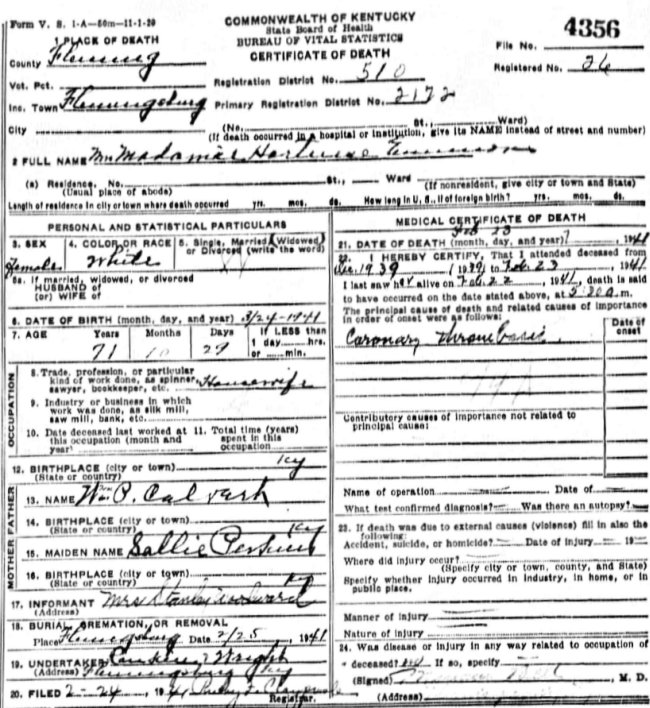 Form V. S. 1-A—50m—11-1-20
COMMONWEALTH OF KENTUCKY
State Board of Health
BUREAU OF VITAL STATISTICS
CERTIFICATE OF DEATH
4356
File No.
Registered No. 26
1 PLACE OF DEATH
County Fleming
Vot. Pct.
Inc. Town Flemingsburg
City
Registration District No. 510
Primary Registration District No. 2172
(No. St., Ward)
(If death occurred in a hospital or institution, give its NAME instead of street and number)
2 FULL NAME Mrs
(a) Residence, No. St., Ward
(Usual place of abode) (If nonresident, give city or town and State)
Length of residence in city or town where death occurred yrs. mos. ds. How long in U. S., if of foreign birth? yrs. mos. ds.
PERSONAL AND STATISTICAL PARTICULARS
3. SEX
Female
4. COLOR OR RACE
White
5. Single, Married, Widowed,
or Divorced (write the word)
5a. If married, widowed, or divorced
HUSBAND of
(or) WIFE of
6. DATE OF BIRTH (month, day, and year) 3/24-1941
7. AGE Years Months Days If LESS than
1 day hrs.
or min.
71 10 29
OCCUPATION
8. Trade, profession, or particular
kind of work done, as spinner, Housewife
sawyer, bookkeeper, etc.
9. Industry or business in which
work was done, as silk mill,
saw mill, bank, etc.
10. Date deceased last worked at
this occupation (month and
year)
11. Total time (years)
spent in this
occupation
12. BIRTHPLACE (city or town) Ky
(State or country)
FATHER
13. NAME Wm P. Calvert
14. BIRTHPLACE (city or town) Ky
(State or country)
MOTHER
15. MAIDEN NAME Sallie Perkins
16. BIRTHPLACE (city or town) Ky
(State or country)
17. INFORMANT Mrs Stanley Woodward
(Address)
18. BURIAL, CREMATION, OR REMOVAL
Place Flemingsburg Date 2/25, 1941
19. UNDERTAKER Wright
(Address) Flemingsburg Ky
20. FILED 2-24, 1941
Registrar.
MEDICAL CERTIFICATE OF DEATH
Feb 23
21. DATE OF DEATH (month, day, and year) , 1941
22. I HEREBY CERTIFY, That I attended deceased from
Dec. 1939, 1939, to Feb. 23, 1941
I last saw her alive on Feb. 22, 1941, death is said
to have occurred on the date stated above, at 5:30 a m.
The principal cause of death and related causes of importance
in order of onset were as follows:
Date of
onset
Coronary Thrombosis
Contributory causes of importance not related to
principal cause:
Name of operation Date of
What test confirmed diagnosis? Was there an autopsy?
23. If death was due to external causes (violence) fill in also the
following:
Accident, suicide, or homicide? Date of injury 19
Where did injury occur?
(Specify city or town, county, and State)
Specify whether injury occurred in industry, in home, or in
public place.
Manner of injury
Nature of injury
24. Was disease or injury in any way related to occupation of
deceased? no If so, specify
(Signed) M. D.
(Address)